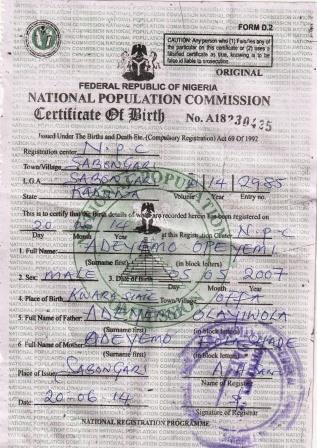 FORM D.2
CAUTION: Any person who (1) Falsifies any of
the particular on this certificate or (2) uses a
falsified certificate as true, knowing it to be
false is liable to prosecution.
ORIGINAL
FEDERAL REPUBLIC OF NIGERIA
NATIONAL POPULATION COMMISSION
Certificate Of Birth No. A18230435
Issued Under The Births and Death Etc. (Compulsory Registration) Act 69 Of 1992
Registration center N.P.C
Town/Village SABONGARI
L.G.A. SABONGARI 14 2985
State Volume Year Entry no.
This is to certify that the Birth details of which are recorded herein has been registered on
20 at this Registration Center N.P.C
Day Month Year
1. Full Name: ADEYEMO OPEYEMI
(Surname first) (in block letters)
2. Sex: MALE 3. Date of Birth 05 05 2007
Day Month Year
4. Place of Birth KWARA STATE Town/Village OFFA
5. Full Name of Father: OLAYIWOLA
(Surname first) (in block letters)
6. Full Name of Mother ADEYEMO
(Surname first) (in block letters)
Place of Issue: SABONGARI
Name of Registrar
Date: 20-06-14
Signature of Registrar
NATIONAL REGISTRATION PROGRAMME